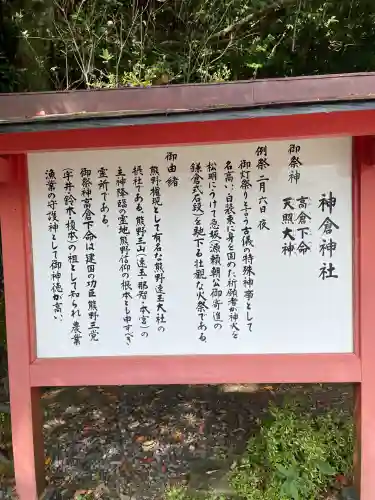 神倉神社
御祭神
高倉下命
天照大神
例祭 二月六日夜
御灯祭りと言う古儀の特殊神事として
名高い。白装束に身を固めた祈願者が神火を
松明にうけて急坂(源頼朝公御寄進の
鎌倉式石段)を馳下る壮観な火祭である。
御由緒
熊野権現として有名な熊野速玉大社の
摂社である。熊野三山(速玉・那智・本宮)の
主神降臨の霊地熊野信仰の根本とも申すべき
霊所である。
御祭神高倉下命は建国の功臣熊野三党
(宇井鈴木榎本)の祖として知られ農業
漁業の守護神として御神徳が高い。